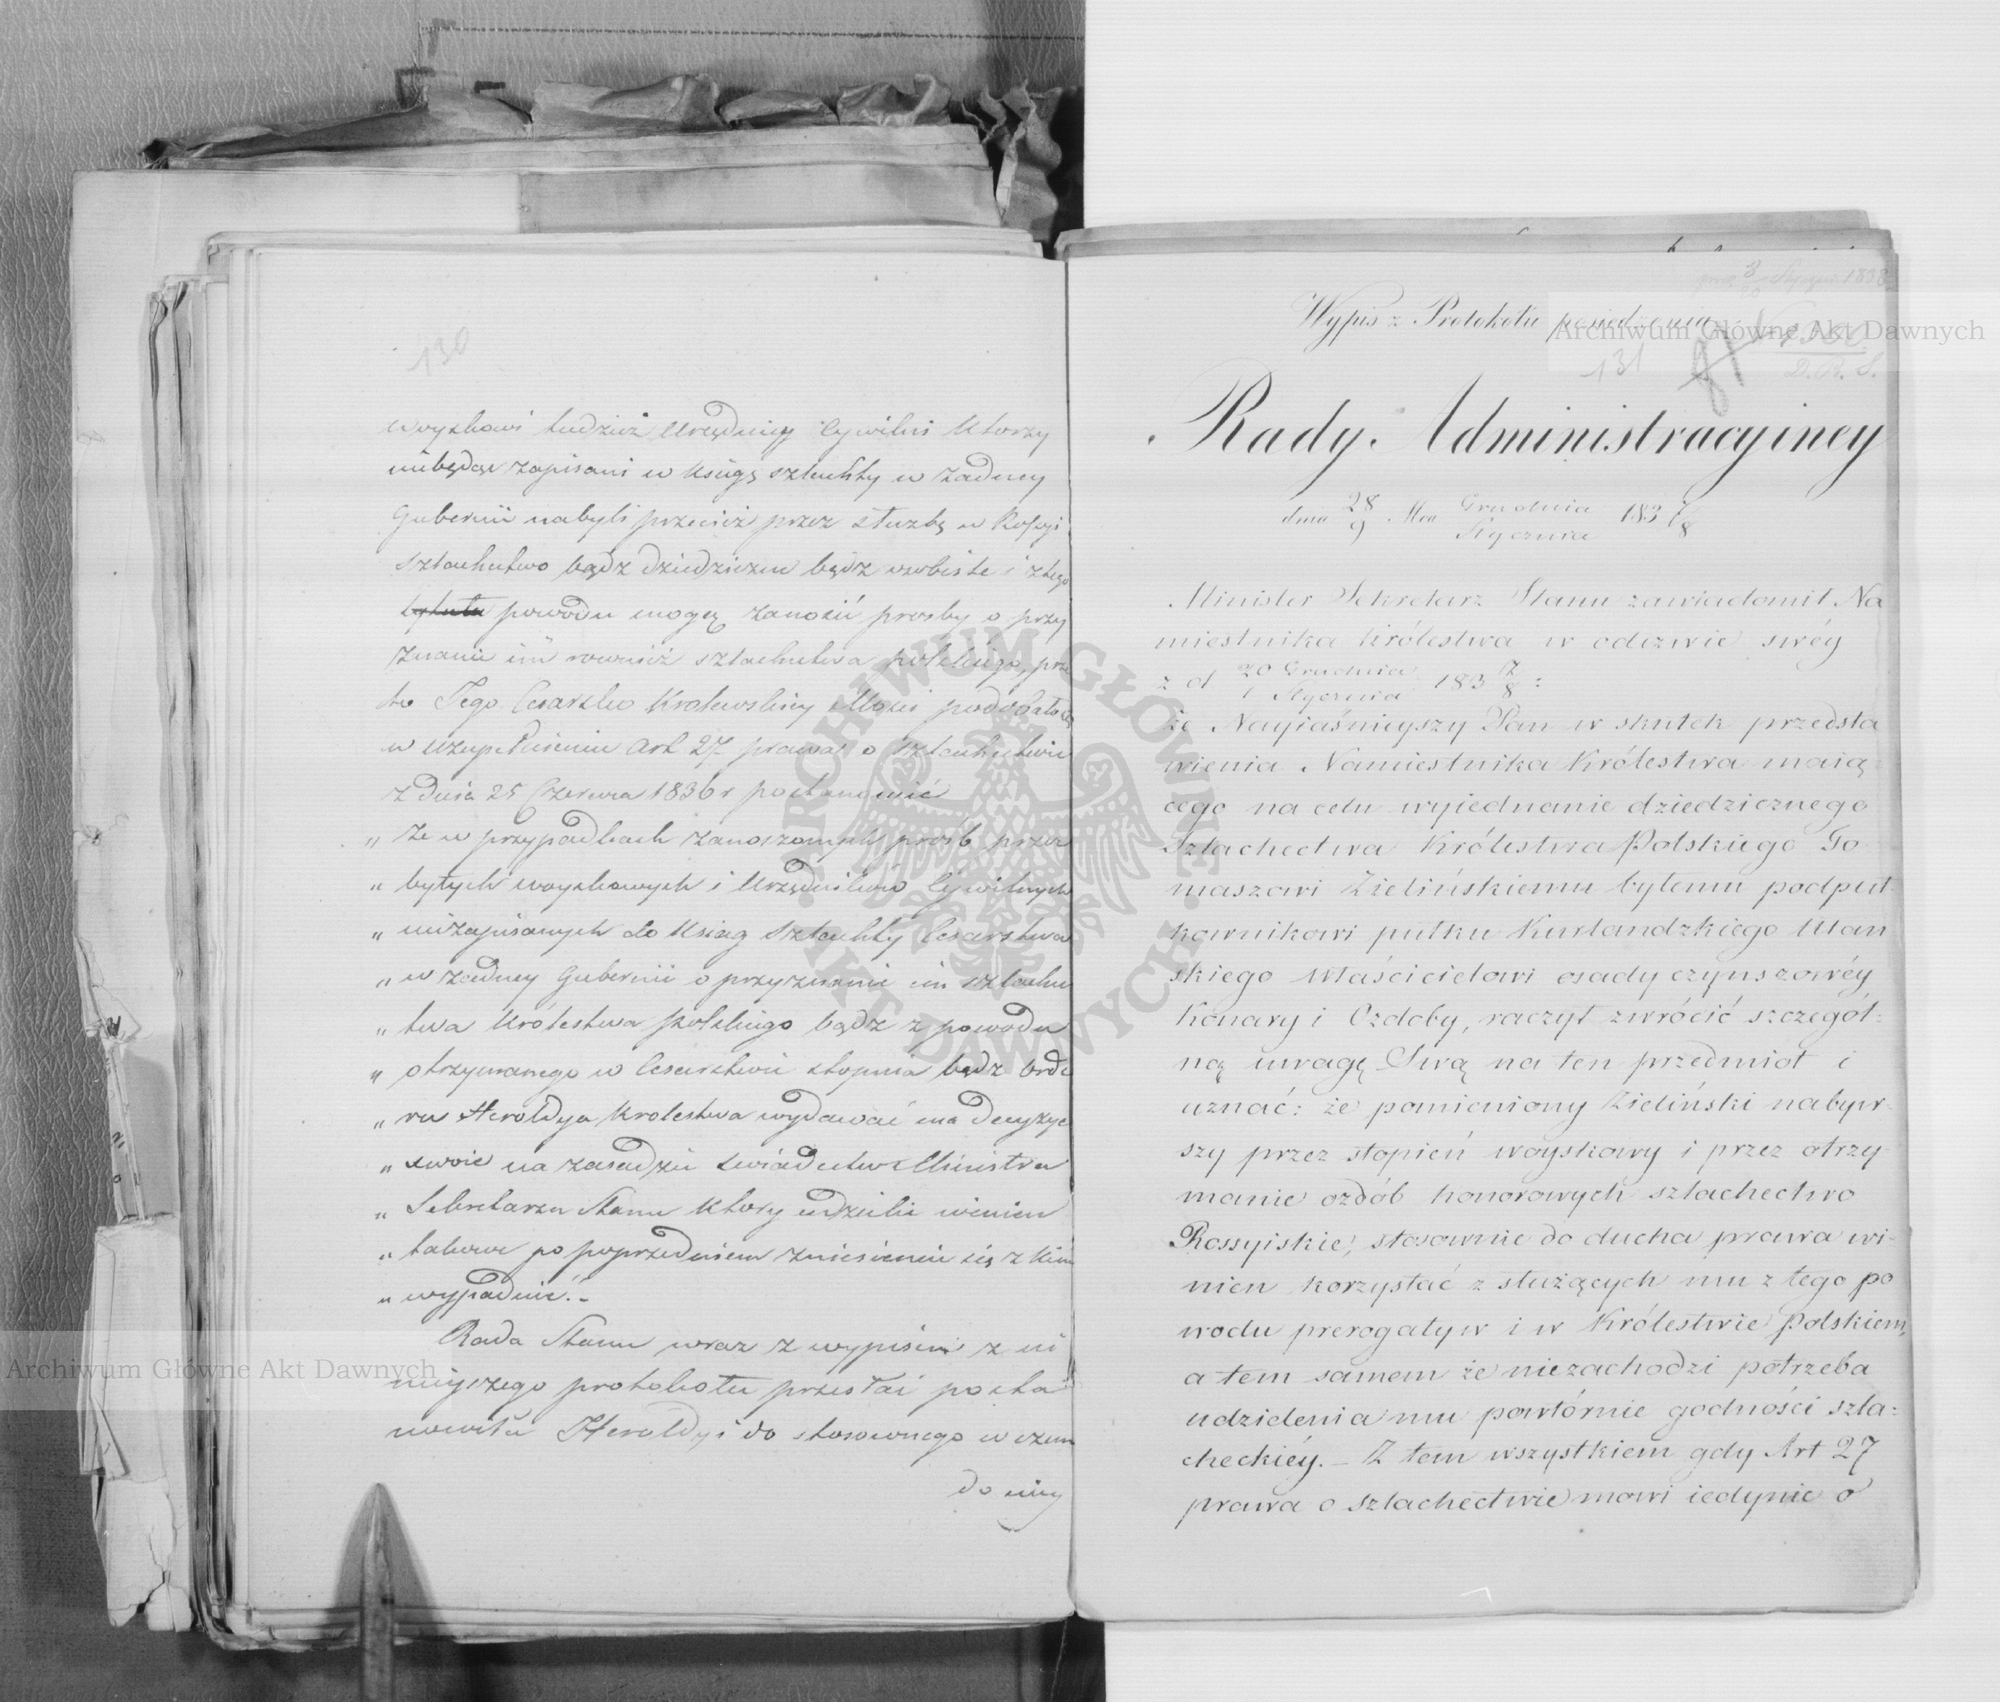 130
woyskowi tudzież Urzędnicy Cywilni którzy
niebędąc zapisani w Księgę szlachty w żadney
Gubernii nabyli przecież przez służbę w Rossyi
szlachectwo bądź dziedziczne bądź osobiste i z tego
tytułu powodu mogą zanosić prośby o przy
znanie im również szlachectwa polskiego, prze
to Jego Cesarsko Królewskiey Mości podobało się
w uzupełnieniu Art 27 prawa o szlachectwie
z dnia 25 Czerwca 1836 r postanowić
„ że w przypadkach zanoszonych prośb przez
„ byłych woyskowych i Urzędników Cywilnych
„ niezapisanych do Ksiąg Szlachty Cesarstwa
„ w żadney Gubernii o przyznanie im szlachec
„ twa Królestwa polskiego bądź z powodu
„ otrzymanego w Cesarstwie stopnia bądź orde
„ ru Heroldya Królestwa wydawać ma decyzye
„ swoie na zasadzie świadectw Ministra
„ Sekretarza Stanu który udzielić winien
„ takowe po poprzedniem zniesieniu się z kim
„ wypadnie.-
Rada Stanu wraz z wypisem z ni
nieyszego protokołu przesłać posta
nowiła Heroldyi do stosownego w czem
do niey
prez 8/20 Stycznia 1838
Wypis z Protokołu posiedzenia
131
D. R. S.
Rady Administracyiney
dnia 28/9 Mca Grudnia/Stycznia 1837/8
Minister Sekretarz Stanu zawiadomił Na
miestnika Królestwa w odezwie swéy
z d 20 Grudnia/1 Stycznia 1837/8:
że Nayiaśnieyszy Pan w skutek przedsta
wienia Namiestnika Królestwa maią
cego na celu wyiednanie dziedzicznego
Szlachectwa Królestwa Polskiego To
maszowi Zielińskiemu byłemu podpuł
kownikowi pułku Kurlandzkiego Ułan
skiego właścicielowi osady czynszowéy
Konary i Ozdoby, raczył zwrócić szczegól-
ną uwagę Swą na ten przedmiot i
uznać: że pomieniony Zieliński nabyw-
szy przez stopień woyskowy i przez otrzy-
manie ozdób honorowych szlachectwo
Rossyiskie, stosownie do ducha prawa wi-
nien korzystać z służących mu z tego po
wodu prerogatyw i w Królestwie Polskiem,
a tem samem że niezachodzi potrzeba
udzielenia mu powtórnie godności szla-
checkiéy. - Z tem wszystkiem gdy Art 27
prawa o szlachectwie mowi iedynie o
Archiwum Główne Akt Dawnych
Archiwum Główne Akt Dawnych
ARCHIWUM GŁÓWNE AKT DAWNYCH